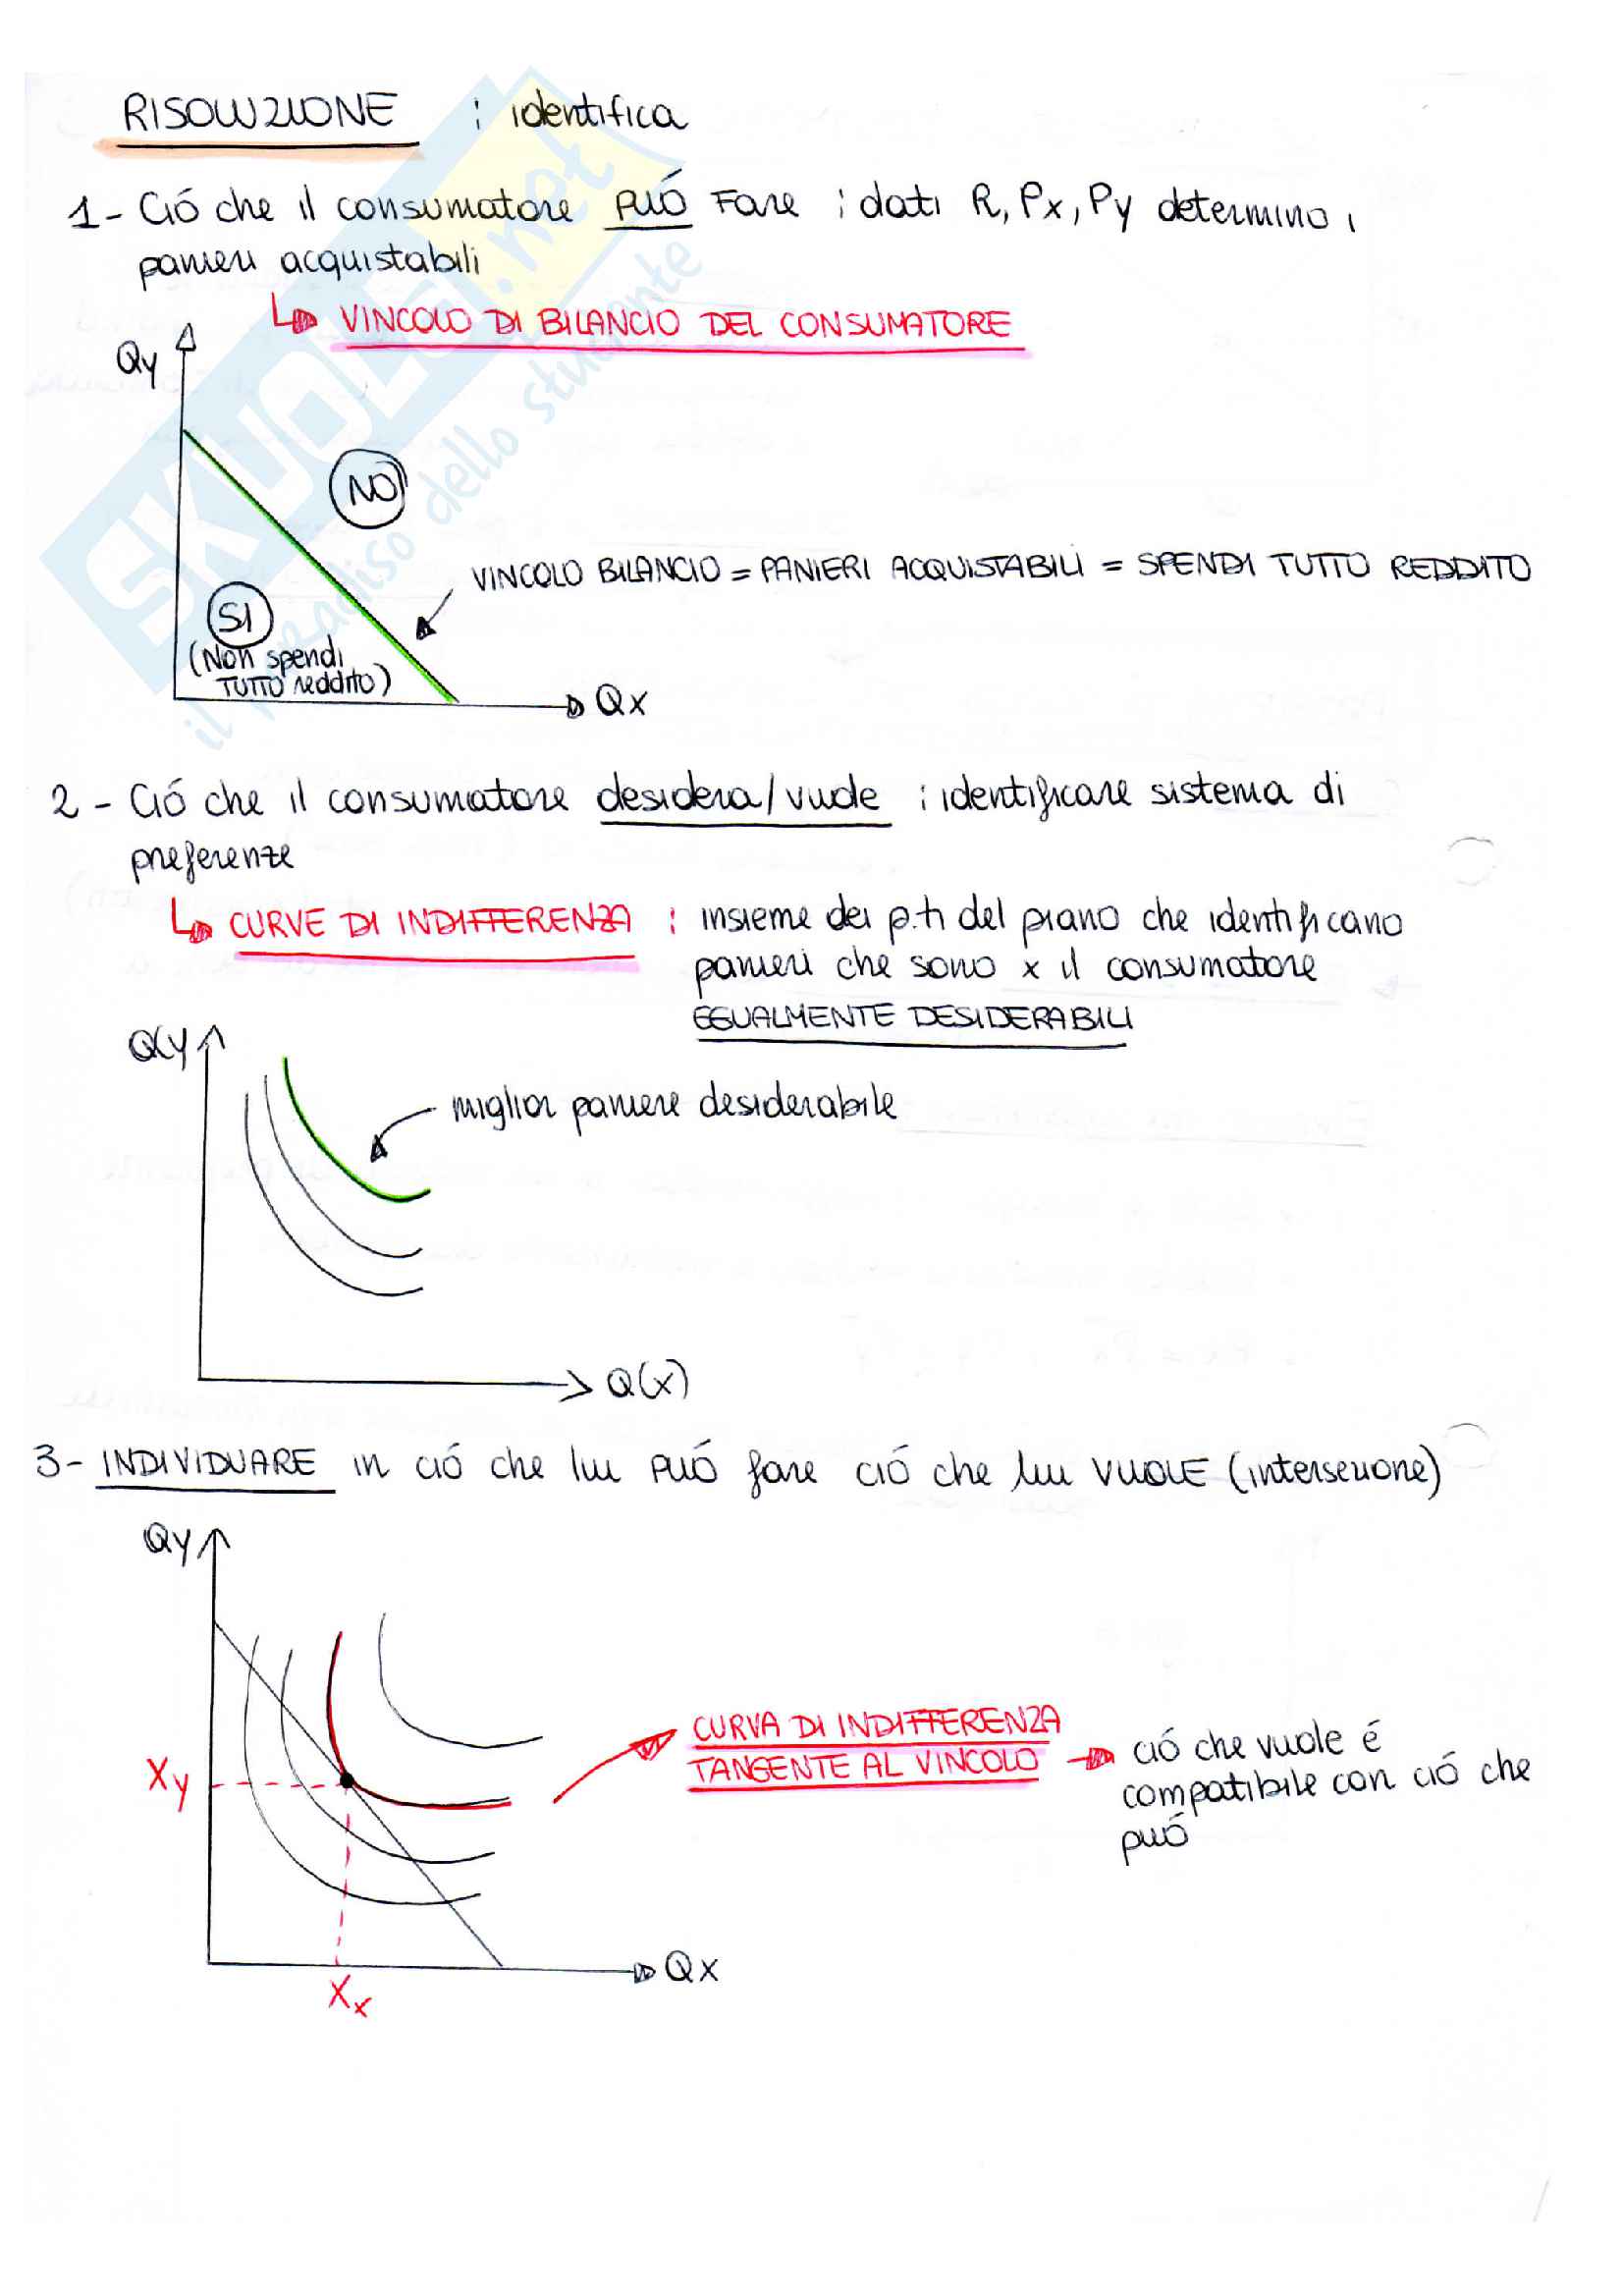 RISOLUZIONE : identifica
1- Ció che il consumatore PUÓ Fare : dati R, Px, Py determino i
panieri acquistabili
VINCOLO DI BILANCIO DEL CONSUMATORE
Qy
NO
VINCOLO BILANCIO = PANIERI ACQUISTABILI = SPENDI TUTTO REDDITO
SI
(Non spendi
TUTTO reddito)
Qx
2 - Ció che il consumatore desidera/vuole : identificare sistema di
preferenze
CURVE DI INDIFFERENZA : insieme dei p.ti del piano che identificano
panieri che sono x il consumatore
EGUALMENTE DESIDERABILI
Q(y
miglior paniere desiderabile
Q(x)
3- INDIVIDUARE in ció che lui PUÓ fare ció che lui VUOLE (intersezione)
Qy
CURVA DI INDIFFERENZA
TANGENTE AL VINCOLO
ció che vuole é
compatibile con ció che
puó
Xy
Qx
Xx
SKUOLA.net
il paradiso dello studente